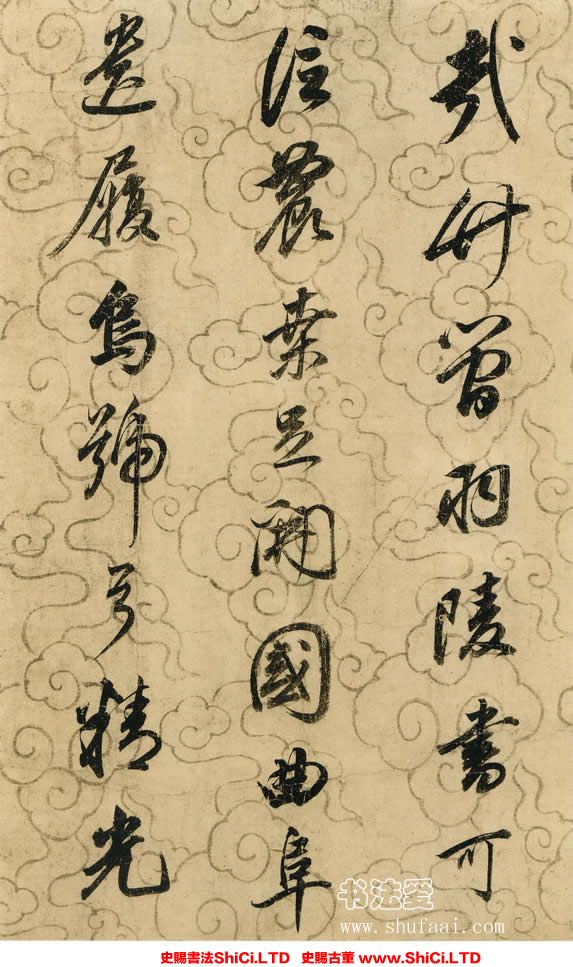 竹曾羽陵書可
農桑足開國曲阜
遺履烏號弓精光
书法爱
www.shufaai.com
史賜書法ShiCi.LTD 史賜古董 www.ShiCi.LTD